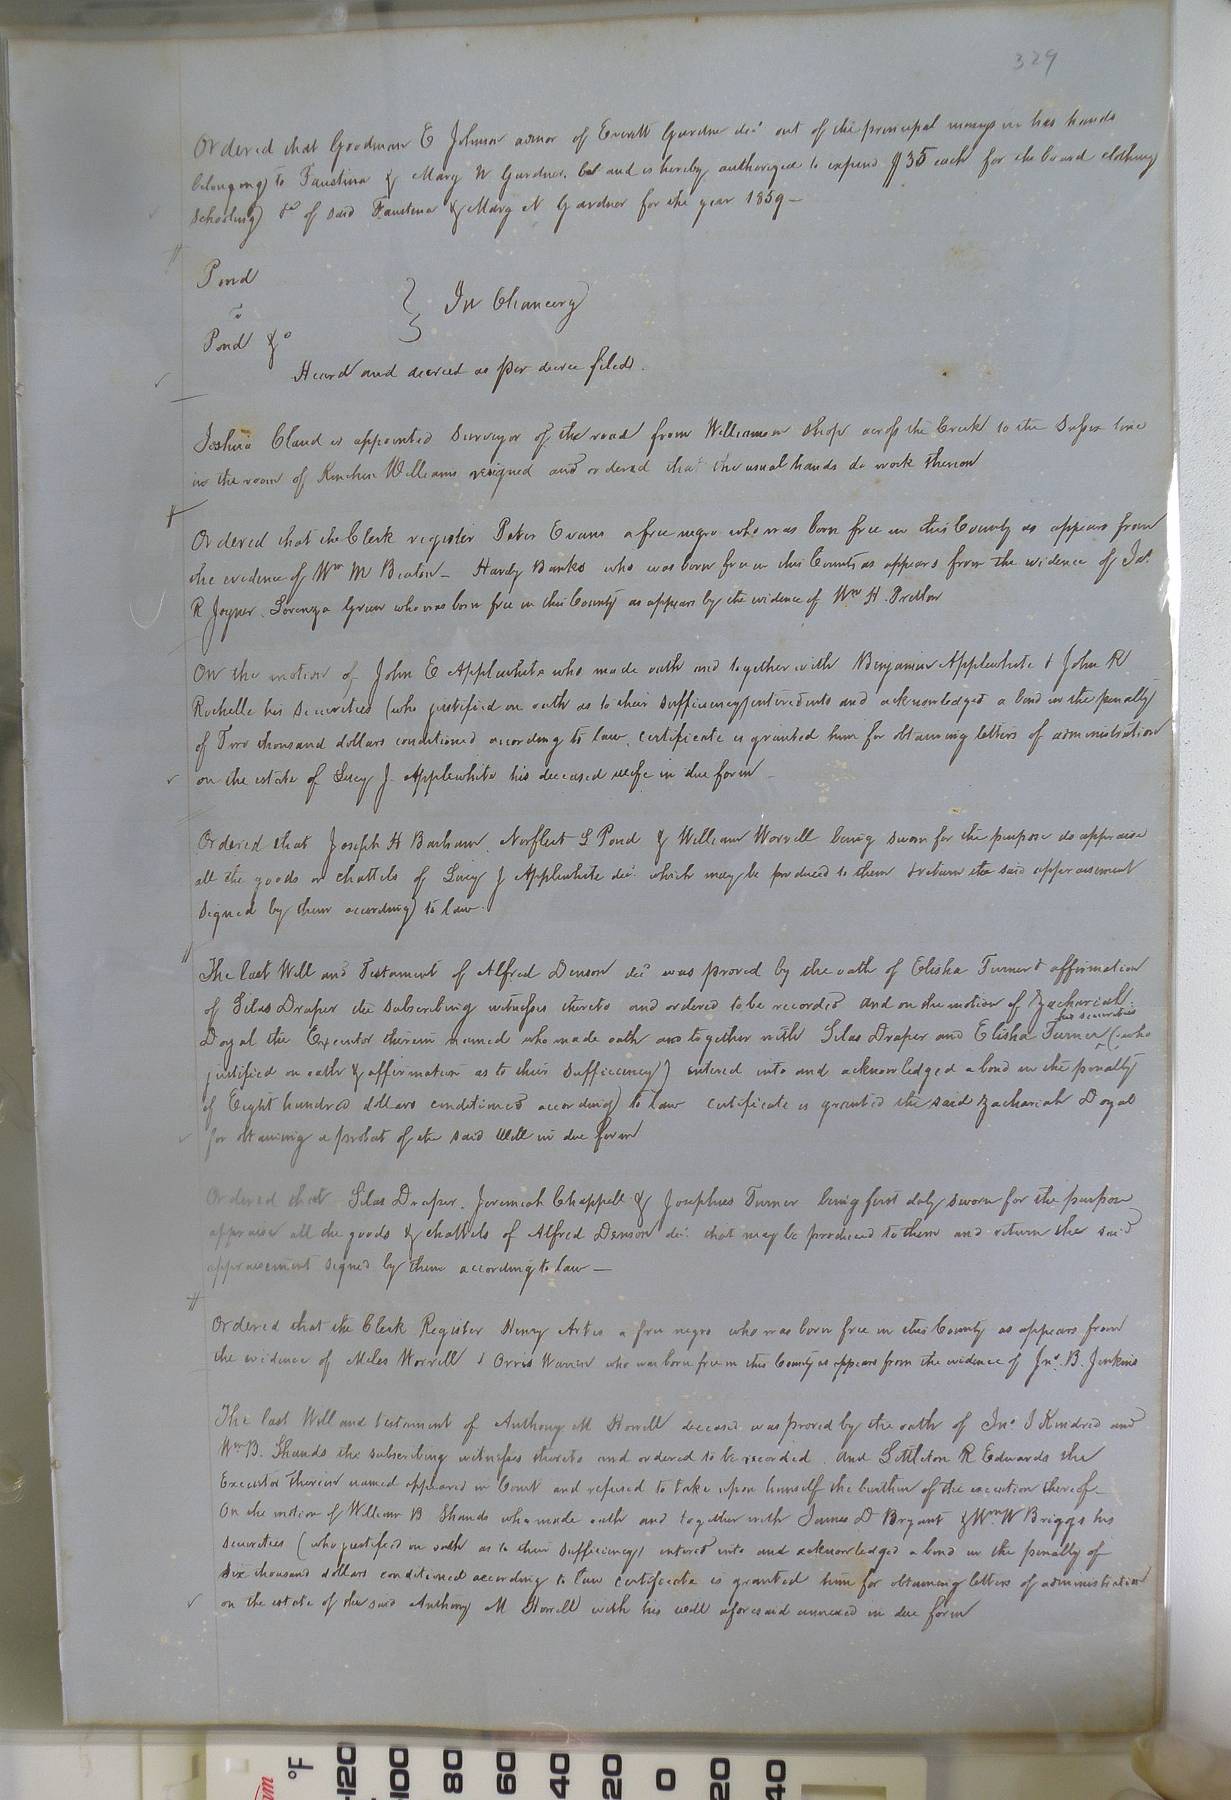 329
Ordered that Goodman E Johnson admor of Everett Gardner decd out of the principal moneys in his hands
belonging to Faustina & Mary N Gardner, be and is hereby authorized to expend $35 each for the board clothing
schooling &c of said Faustina & Mary N Gardner for the year 1859 —
Pond
vs
Pond &c
} In Chancery
Heard and decreed as per decree filed.
Joshua Claud is appointed Surveyor of the road from Williamson Shop across the Creek to the Sussex line
in the room of Kinchen Williams resigned and ordered that the usual hands do work thereon
Ordered that the Clerk register Peter Evans a free negro who was born free in this County as appears from
the evidence of Wm M Beaton — Hardy Banks who was born free in this County as appears from the evidence of Jas.
R Joyner. Lorenzo Green who was born free in this County as appears by the evidence of Wm H. Pretlow
On the motion of John E Applewhite who made oath and together with Benjamin Applewhite & John R
Rochelle his securities (who justified on oath as to their sufficiency) entered into and acknowledged a bond in the penalty
of Two thousand dollars conditioned according to law, certificate is granted him for obtaining letters of administration
on the estate of Lucy J. Applewhite his deceased wife in due form —
Ordered that Joseph H Barham, Norfleet S Pond & William Worrell being sworn for the purpose do appraise
all the goods or chattels of Lucy J Applewhite decd. which may be produced to them & return the said appraisement
signed by them according to law.
The last Will and Testament of Alfred Denson decd was proved by the oath of Elisha Turner & affirmation
of Silas Draper the subscribing witnesses thereto and ordered to be recorded and on the motion of Zachariah
Doyal the Executor therein named who made oath and together with Silas Draper and Elisha Turner his securities (who
justified on oath & affirmation as to their sufficiency) entered into and acknowledged a bond in the penalty
of Eight hundred dollars conditioned according to law certificate is granted the said Zachariah Doyal
for obtaining a probat of the said Will in due form
Ordered that Silas Draper, Jeremiah Chappell & Josephus Turner being first duly sworn for the purpose
appraise all the goods & chattels of Alfred Denson decd. that may be produced to them and return the said
appraisement signed by them according to law —
Ordered that the Clerk Register Henry Artis a free negro who was born free in this County as appears from
the evidence of Miles Worrell & Orris Warren who was born free in this County as appears from the evidence of Jno. B. Jenkins
The last Will and testament of Anthony M Howell deceased was proved by the oath of Jno J Kindred and
Wm B. Shands the subscribing witnesses thereto and ordered to be recorded. And Littleton R Edwards the
Executor therein named appeared in Court and refused to take upon himself the burthen of the execution thereof —
On the motion of William B Shands who made oath and together with James D Bryant & Wm W Briggs his
securities (who justified on oath as to their sufficiency) entered into and acknowledged a bond in the penalty of
Six thousand dollars conditioned according to law certificate is granted him for obtaining letters of administration
on the estate of the said Anthony M Howell with his will aforesaid annexed in due form
°F
120
100
80
60
40
20
0
20
40